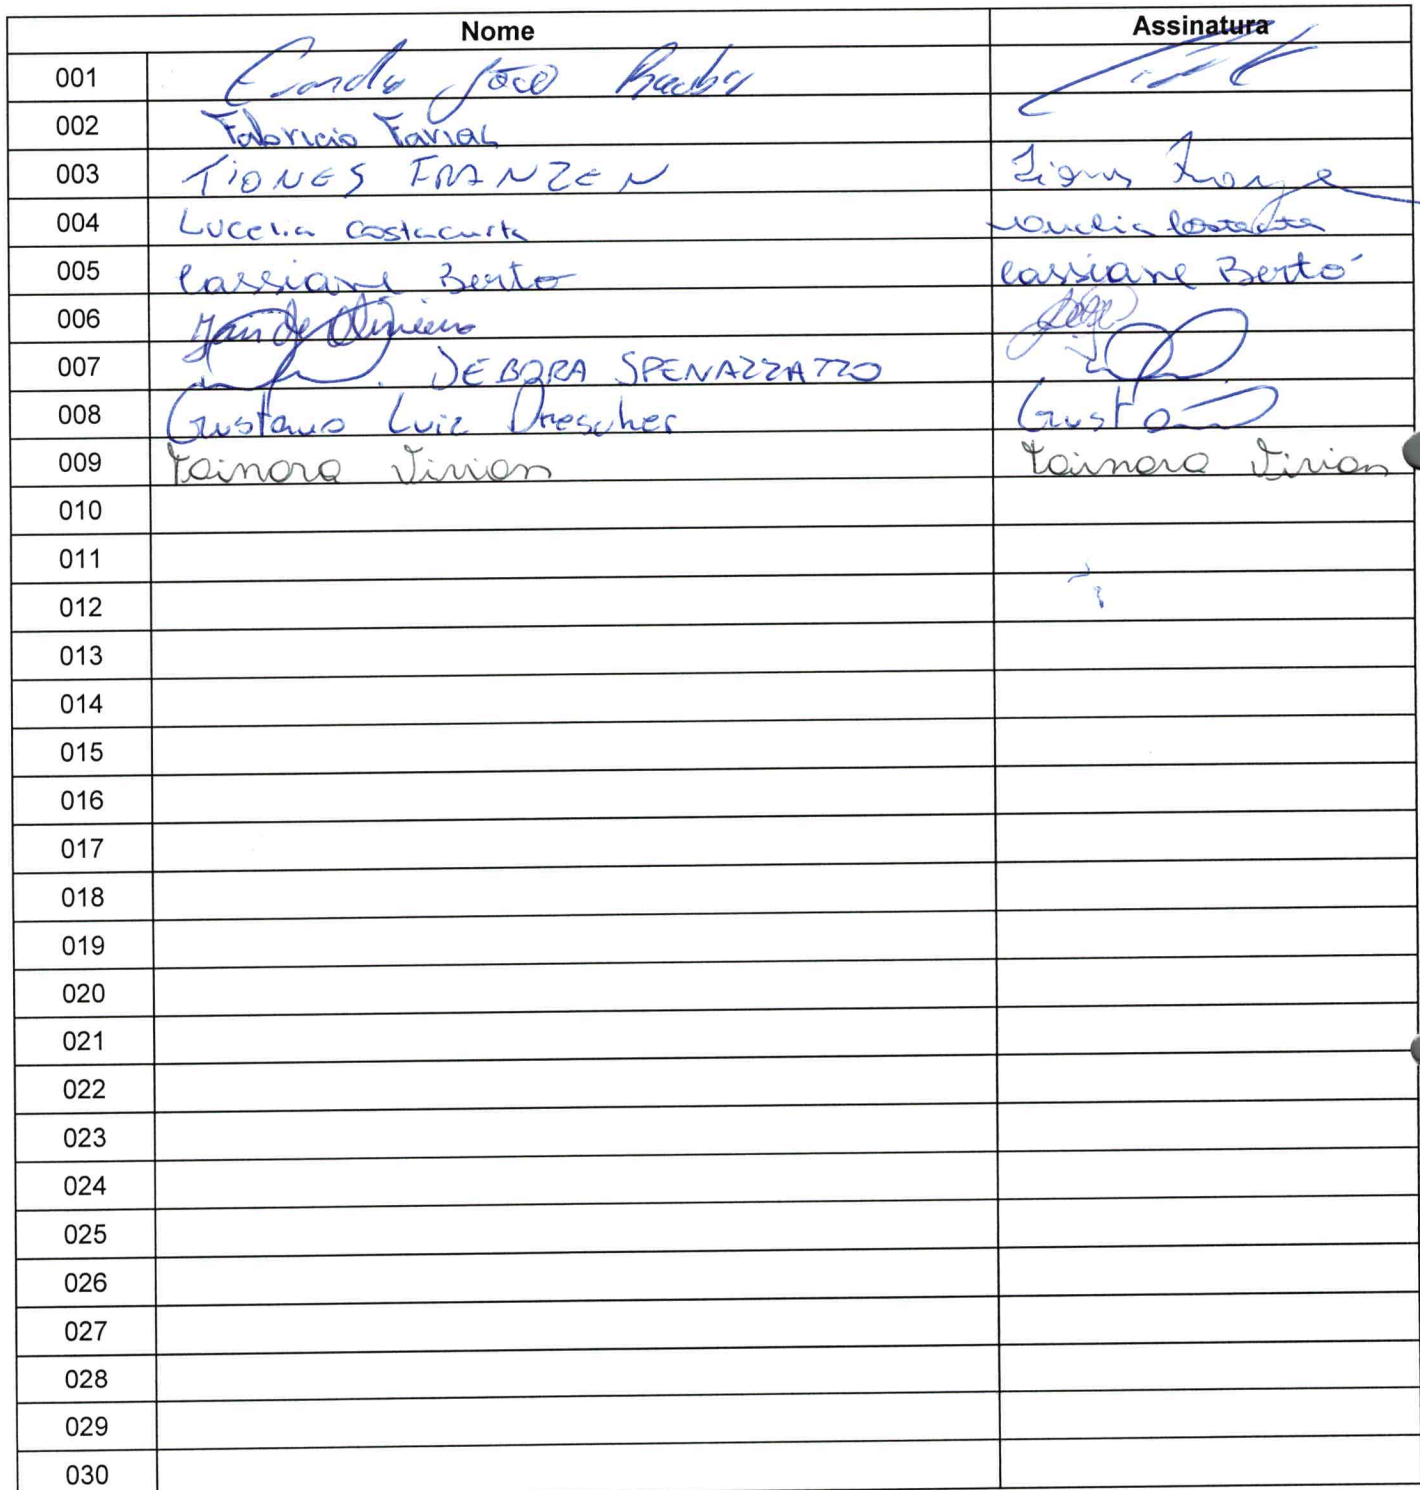 Nome Assinatura
001 João
002 Fabricio Farias
003 TIONES FRANZEN
004 Lucelia Costacurta
005 Cassiane Berto Cassiane Bertó
006
007 DEBORA SPENAZZATTO
008 Gustavo Luiz Drescher Gusta
009 Tainara Vivian Tainara Vivian
010
011
012
013
014
015
016
017
018
019
020
021
022
023
024
025
026
027
028
029
030